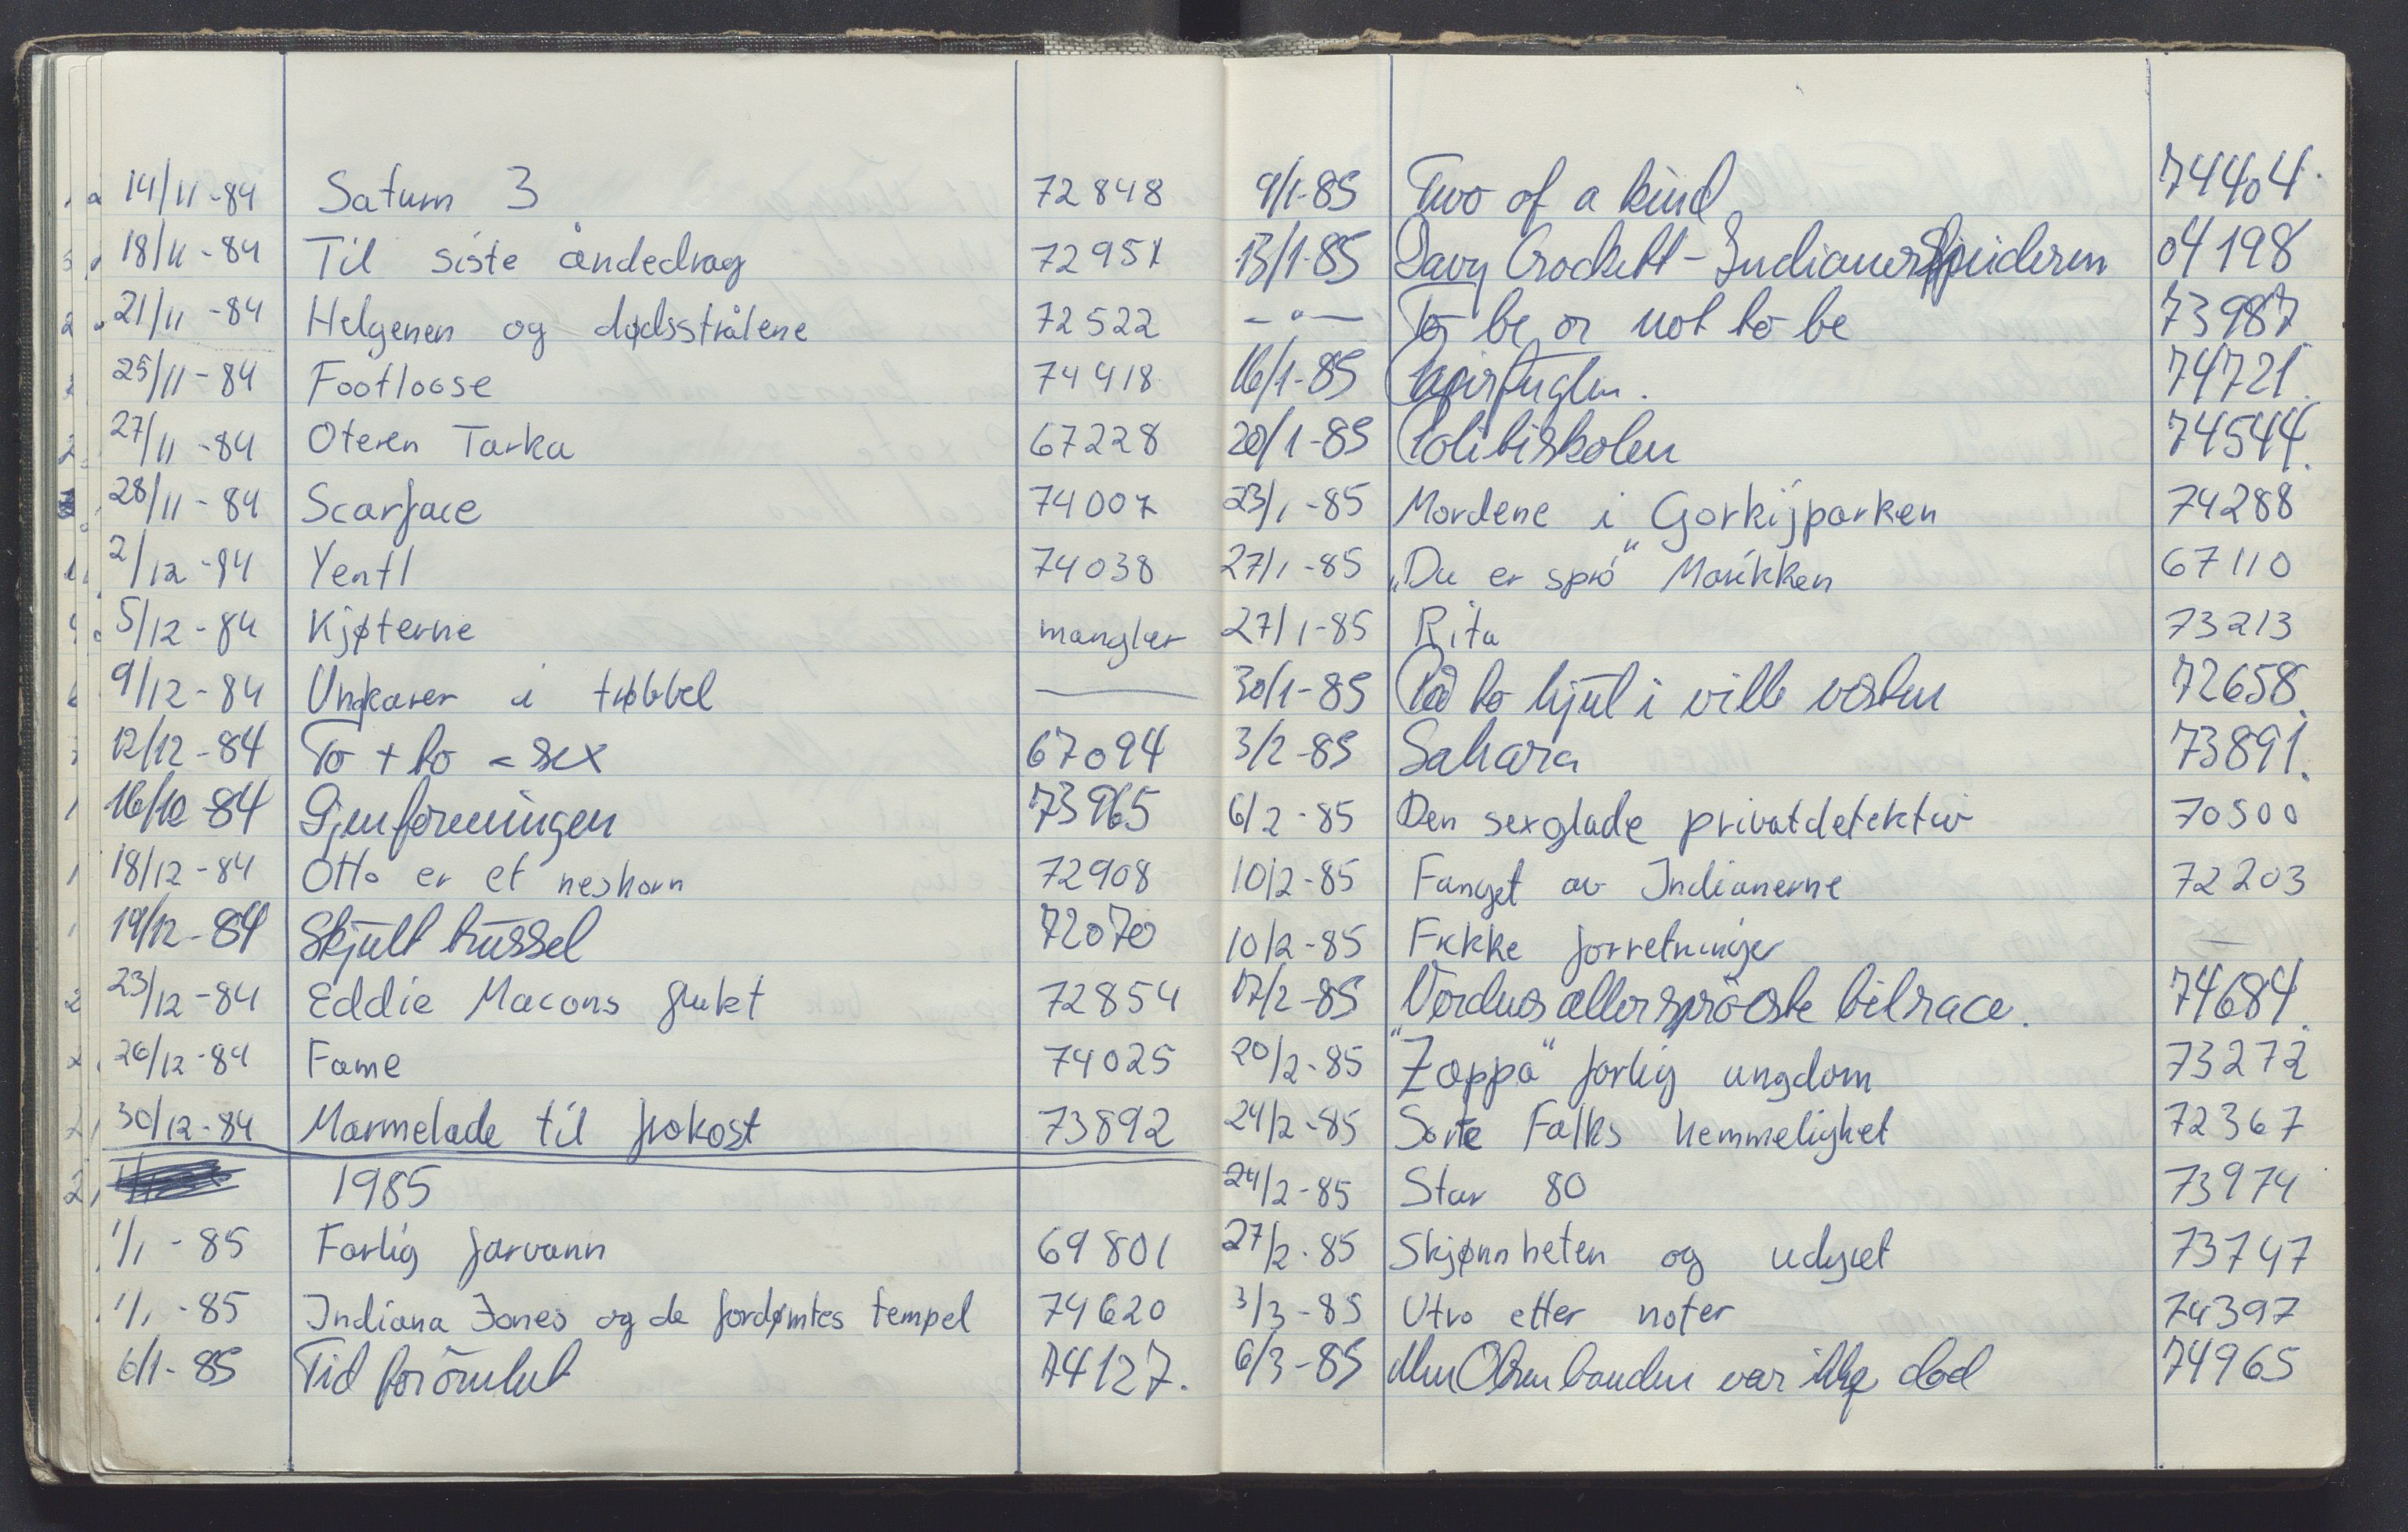 14/11-84 Saturn 3 72848
18/11-84 Til siste åndedrag 72951
21/11-84 Helgenen og dødsstrålene 72522
25/11-84 Footloose 74418
27/11-84 Oteren Tarka 67228
28/11-84 Scarface 74007
2/12-84 Yentl 74038
5/12-84 Kjøterne mangler
9/12-84 Ungkarer i trøbbel —
12/12-84 To + to = sex 67094
16/12-84 Gjenforeningen 73965
18/12-84 Otto er et neshorn 72908
19/12-84 Skjult trussel 72070
23/12-84 Eddie Macons flukt 72854
26/12-84 Fame 74025
30/12-84 Marmelade til frokost 73892
1985
1/1-85 Farlig farvann 69801
1/1-85 Indiana Jones og de fordømtes tempel 74620
6/1-85 Tid for ömhet 74127.
9/1-85 Two of a kind 74404.
13/1-85 Davy Crockett - Indianerspeideren 04198
-"- To be or not to be 73987
16/1-85 Papirfuglen. 74721.
20/1-85 Politiskolen 74544.
23/1-85 Mordene i Gorkijparken 74288
27/1-85 "Du er sprø" Marikken 67110
27/1-85 Rita 73213
30/1-85 På to hjul i ville vesten 72658.
3/2-85 Sahara 73891.
6/2-85 Den sexglade privatdetektiv 70500
10/2-85 Fanget av Indianerne 72203
10/2-85 Frekke forretninger —
17/2-85 Verdens aller sprøeste bilrace. 74684.
20/2-85 "Zappa" farlig ungdom 73272
24/2-85 Sorte Falks hemmelighet 72367
24/2-85 Star 80 73974
27/2-85 Skjønnheten og udyret 73747
3/3-85 Utro etter noter 74397
6/3-85 Men Olsenbanden var ikke død 74965